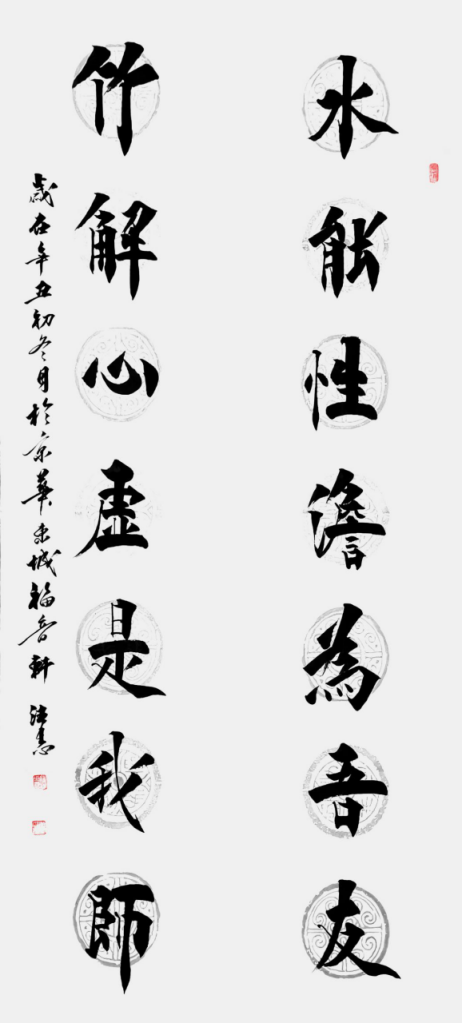 水能性澹為吾友
竹解心虛是我師
歲在辛丑初冬月於京華東城福音軒 法慧